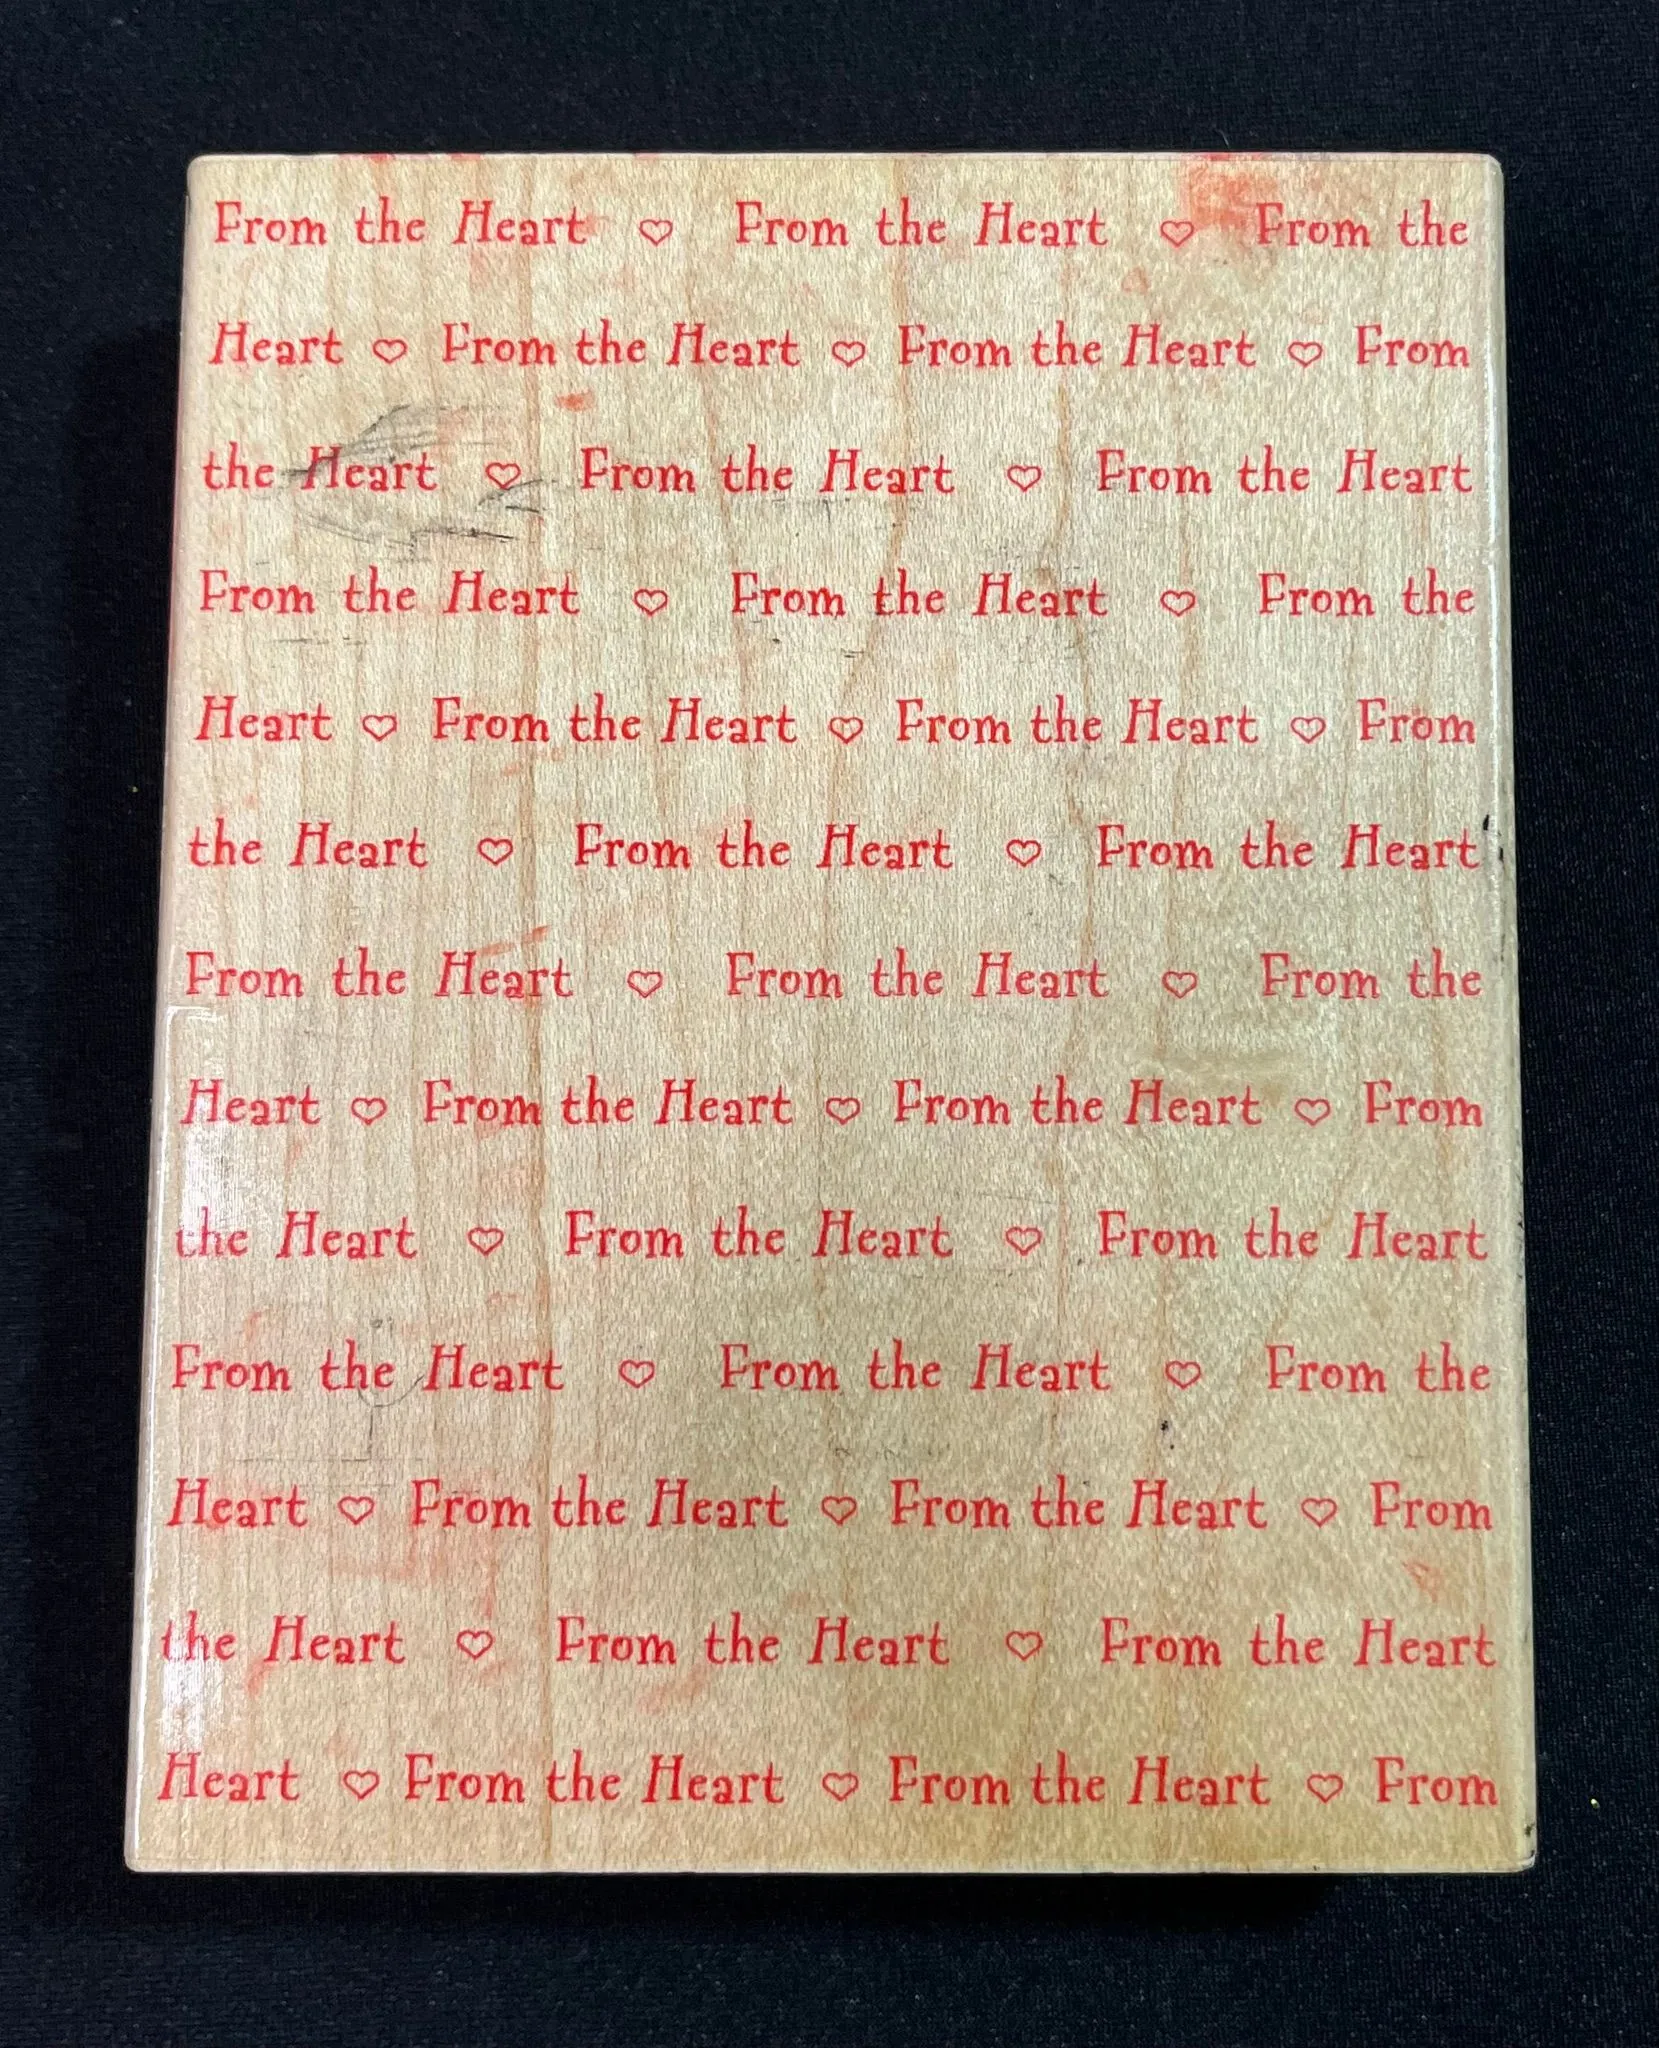 From the Heart ♡ From the Heart ♡ From the
Heart ♡ From the Heart ♡ From the Heart ♡ From
the Heart ♡ From the Heart ♡ From the Heart
From the Heart ♡ From the Heart ♡ From the
Heart ♡ From the Heart ♡ From the Heart ♡ From
the Heart ♡ From the Heart ♡ From the Heart
From the Heart ♡ From the Heart ♡ From the
Heart ♡ From the Heart ♡ From the Heart ♡ From
the Heart ♡ From the Heart ♡ From the Heart
From the Heart ♡ From the Heart ♡ From the
Heart ♡ From the Heart ♡ From the Heart ♡ From
the Heart ♡ From the Heart ♡ From the Heart
Heart ♡ From the Heart ♡ From the Heart ♡ From